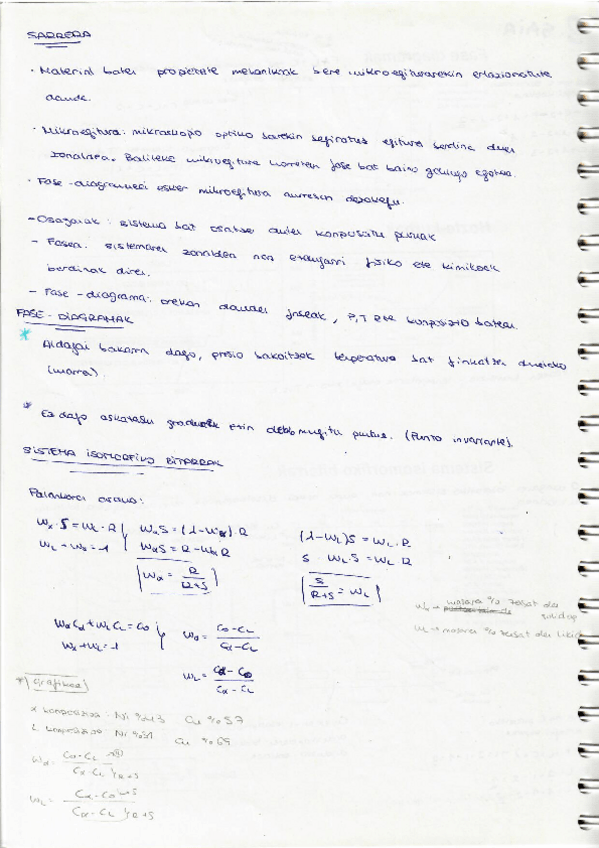 SARRERA
· Material baten propietate mekanikoak bere mikroegiturarekin erlazionatute
daude.
· Mikroegitura: mikroskopio optiko batekin egitura berdina duen
zonaldea. Baliteke mikroegitura horretan fase bat baino gehiago egotea.
· Fase-diagramei esker mikroegitura aurresan dezakegu.
- Osagaiak: sistema bat osatzen duten konposatu puruak
- Fasea: sistemaren non ezaugarri fisiko eta kimikoak
berdinak diren.
- Fase-diagrama: orekan dauden faseak, P, T eta konposizio baten.
FASE-DIAGRAMAK
* Aldagai bakarra dago, presio bakoitzak temperatura bat finkatzen duelako
(marra).
* Ez dago askatasun gradurik ezin puntua. (Punto invariante).
SISTEMA ISOMORFIKO BITARRAK
Palankaren araua:
Wα·S = WL·R WαS = (1-Wα)·R (1-WL)S = WL·R
WL + Wα = 1 WαS = R-WαR S-WL·S = WL R
Wα = R/R+S S/R+S = WL
Wα → masara % zenbat den
WL → masara % zenbat den
WαCα + WLCL = C0 Wα = C0-CL/Cα-CL
Wα + WL = 1
WL = Cα-C0/Cα-CL
* Grafikoa
α konposizioa: Ni %43 Cu %57
L konposizioa Ni %31 Cu %69
Wα = C0-CL/Cα-CL R+S
WL = Cα-C0/Cα-CL R+S